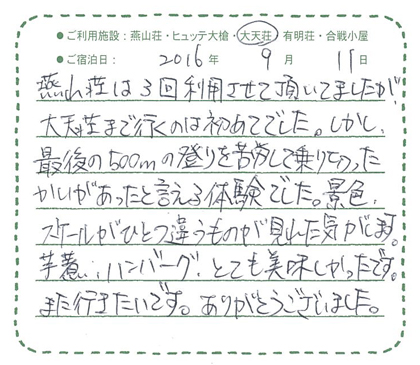 ●ご利用施設：燕山荘・ヒュッテ大槍・大天荘・有明荘・合戦小屋
●ご宿泊日： 2016年 9月 11日
燕山荘は3回利用させて頂いてましたが、
大天荘まで行くのは初めてでした。しかし、
最後の500mの登りを苦労して乗り切った
かいがあったと言える体験でした。景色、
スケールがひとつ違うものが見れた気がします。
芋煮、ハンバーグ、とても美味しかったです。
また行きたいです。ありがとうございました。